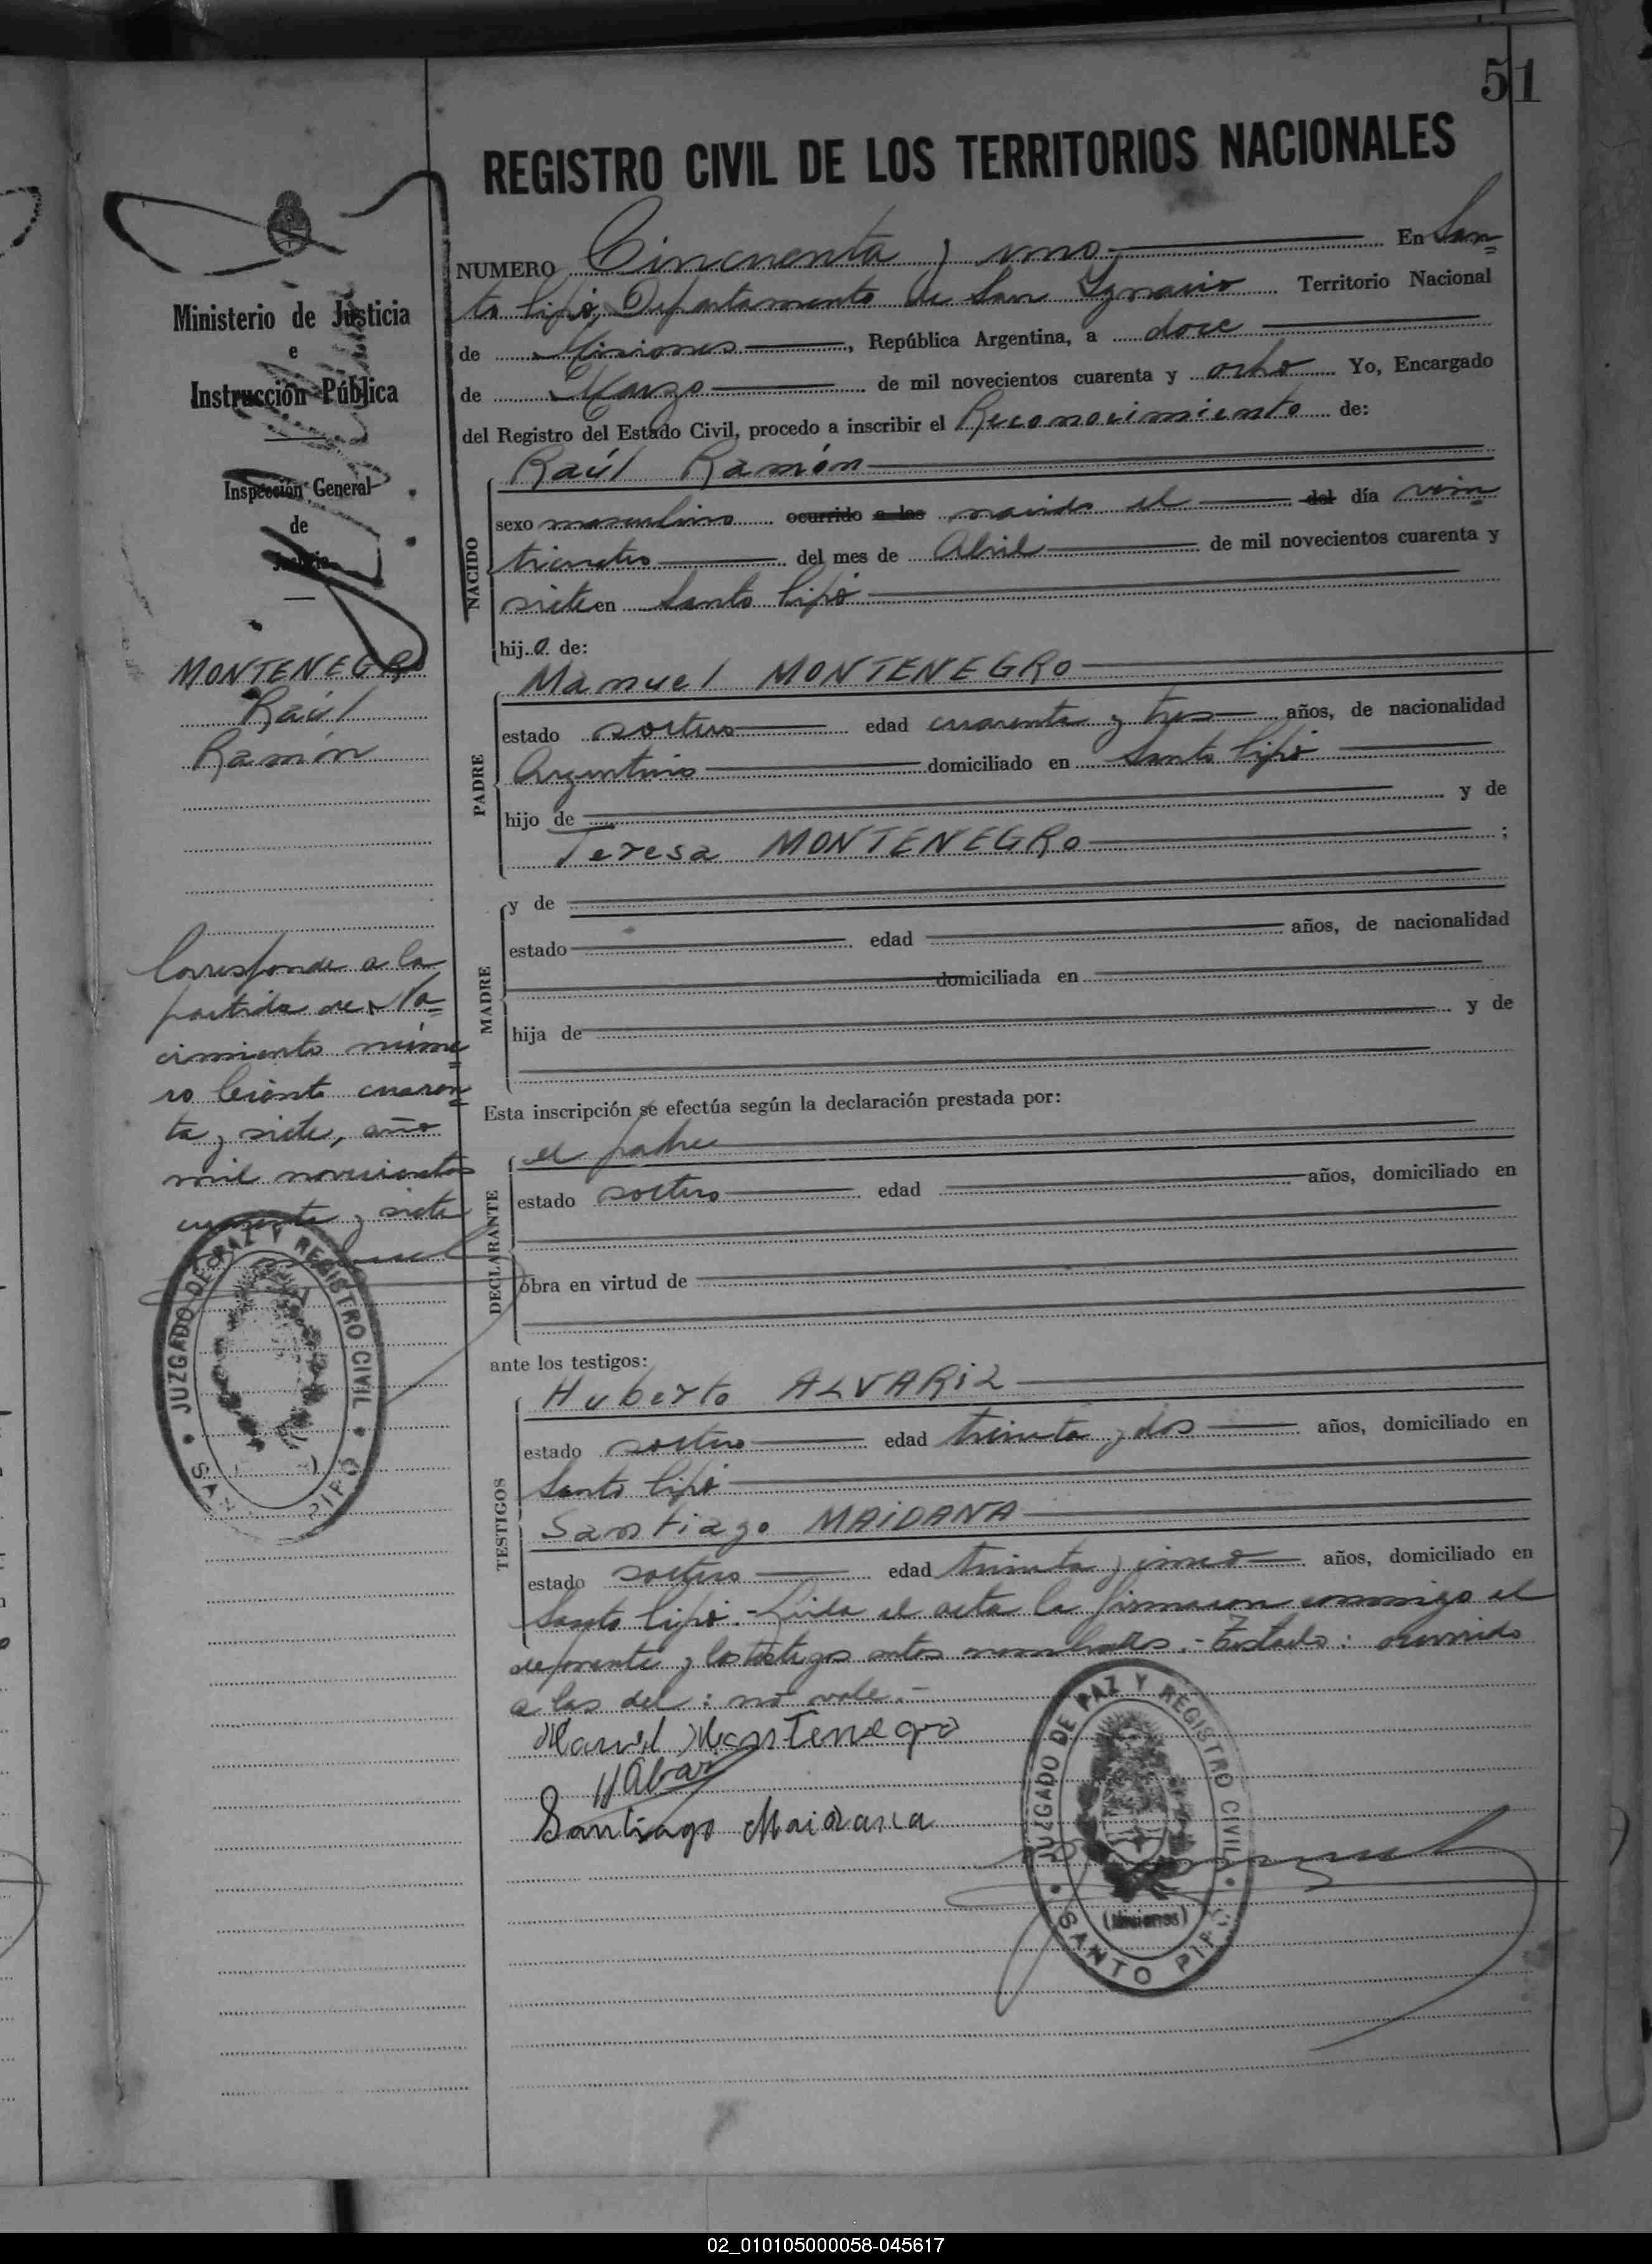 51
REGISTRO CIVIL DE LOS TERRITORIOS NACIONALES
Ministerio de Justicia
e
Instrucción Pública
Inspección General
de
Justicia
MONTENEGRO
Raúl
Ramón
Corresponde a la
partida de Na=
cimiento núme=
ro Ciento cuaren=
ta y siete, año
mil novecientos
cuarenta y siete
JUZGADO DE PAZ Y REGISTRO CIVIL
SAN PIPÓ
NUMERO Cincuenta y uno En San=
to Pipó, Departamento de San Ygnacio Territorio Nacional
de Misiones, República Argentina, a doce
de Marzo de mil novecientos cuarenta y ocho Yo, Encargado
del Registro del Estado Civil, procedo a inscribir el Reconocimiento de:
NACIDO
Raúl Ramón
sexo masculino ocurrido a las nacido el del día vein=
ticuatro del mes de Abril de mil novecientos cuarenta y
siete en Santo Pipó
hijo de:
PADRE
Manuel MONTENEGRO
estado soltero edad cuarenta y tres años, de nacionalidad
Argentino domiciliado en Santo Pipó
hijo de y de
Teresa MONTENEGRO ;
MADRE
y de
estado edad años, de nacionalidad
domiciliada en
hija de y de
Esta inscripción se efectúa según la declaración prestada por:
DECLARANTE
el padre
estado soltero edad años, domiciliado en
obra en virtud de
ante los testigos:
TESTIGOS
Huberto ALVARiZ
estado soltero edad treinta y dos años, domiciliado en
Santo Pipó
Santiago MAiDANA
estado soltero edad treinta y cinco años, domiciliado en
Santo Pipó.- Leída el acta la firmaron conmigo el
deponente y los testigos antes nombrados.- Testado: ocurrido
a las del: no vale.-
Manuel Montenegro
Santiago Maidana
JUZGADO DE PAZ Y REGISTRO CIVIL
(Misiones)
SANTO PIPÓ
02_010105000058-045617